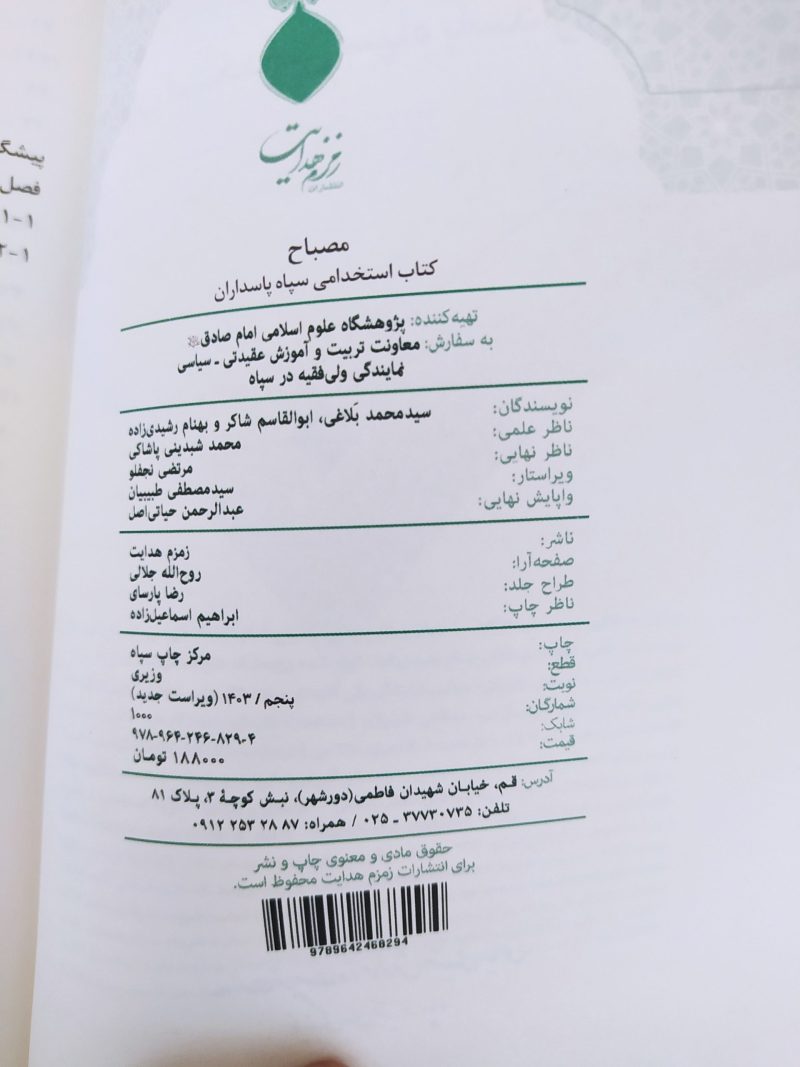 انتشارات
زمزم هدایت
مصباح
کتاب استخدامی سپاه پاسداران
تهیه‌کننده: پژوهشگاه علوم اسلامی امام صادق
به سفارش: معاونت تربیت و آموزش عقیدتی ـ سیاسی
نمایندگی ولی‌فقیه در سپاه
نویسندگان: سیدمحمد بَلاغی، ابوالقاسم شاکر و بهنام رشیدی‌زاده
ناظر علمی: محمد شبدینی پاشاکی
ناظر نهایی: مرتضی نجفلو
ویراستار: سیدمصطفی طبیبیان
واپایش نهایی: عبدالرحمن حیاتی‌اصل
ناشر: زمزم هدایت
صفحه‌آرا: روح‌الله جلالی
طراح جلد: رضا پارسای
ناظر چاپ: ابراهیم اسماعیل‌زاده
چاپ: مرکز چاپ سپاه
قطع: وزیری
نوبت: پنجم / ۱۴۰۳ (ویراست جدید)
شمارگان: ۱۰۰۰
شابک: ۹۷۸-۹۶۴-۲۴۶-۸۲۹-۴
قیمت: ۱۸۸۰۰۰ تومان
آدرس: قم، خیابان شهیدان فاطمی(دورشهر)، نبش کوچهٔ ۳، پلاک ۸۱
تلفن: ۳۷۷۳۰۷۳۵ ـ ۰۲۵ / همراه: ۸۷ ۲۸ ۲۵۳ ۰۹۱۲
حقوق مادی و معنوی چاپ و نشر
برای انتشارات زمزم هدایت محفوظ است.
9789642468294
فصل
۱-۱